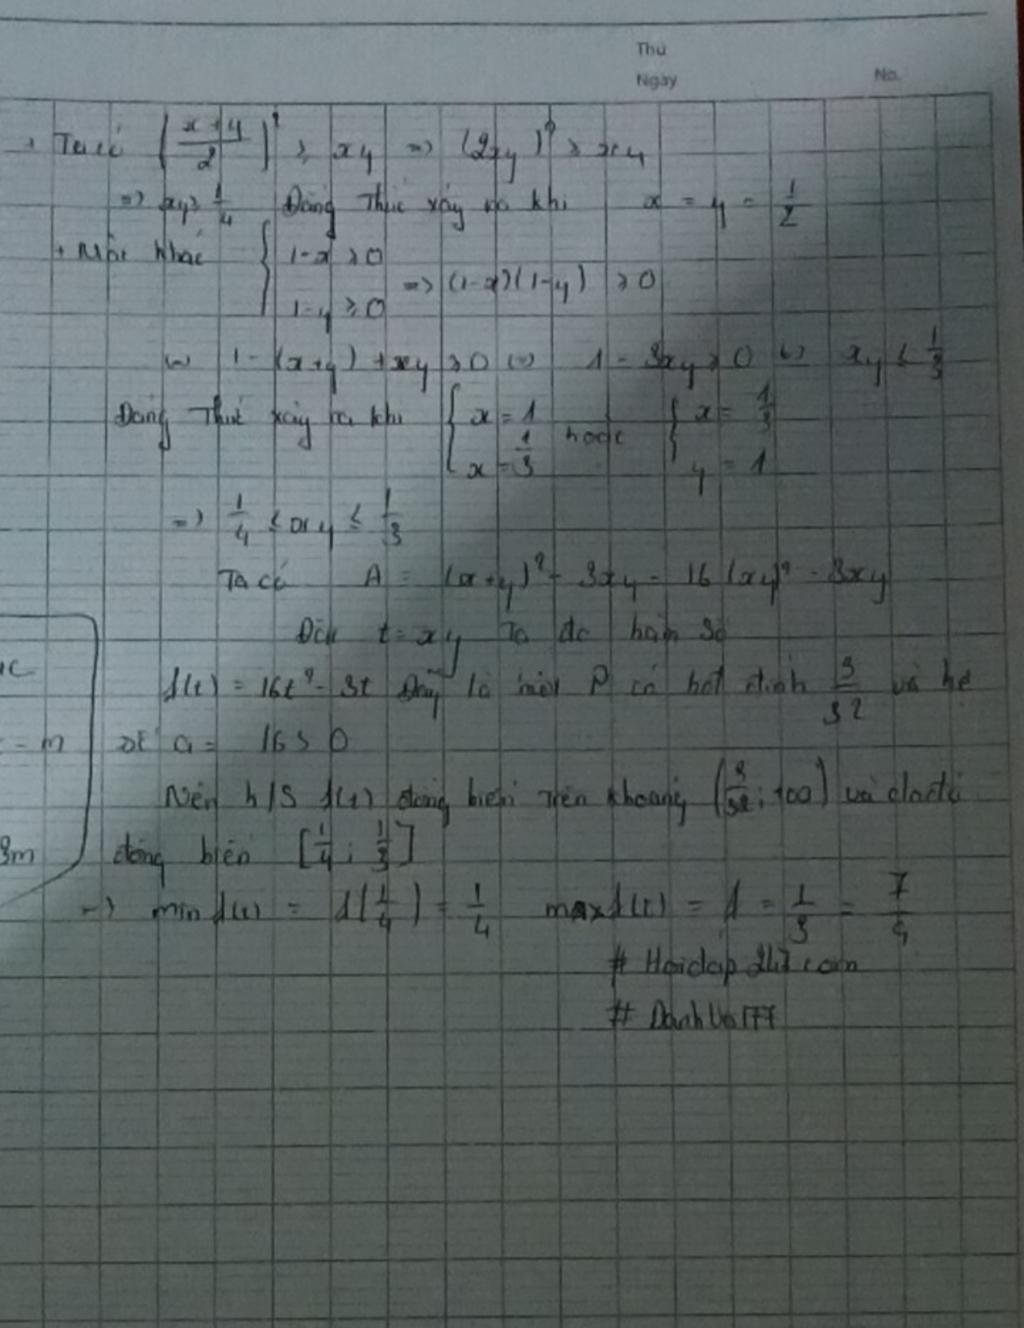 Thứ
Ngày No.
+ Ta có (x+y/2)² ≥ xy => (2xy)² ≥ xy
=> xy ≥ 1/4 Đẳng thức xảy ra khi x = y = 1/2
+ Mặt khác { 1-x ≥ 0 1-y ≥ 0 => (1-x)(1-y) ≥ 0
<=> 1-(x+y)+xy ≥ 0 <=> 1-3xy ≥ 0 <=> xy ≤ 1/3
Đẳng thức xảy ra khi { x = 1 x = 1/3 hoặc { x = 1/3 y = 1
=> 1/4 ≤ xy ≤ 1/3
Ta có A = (x+y)² - 3xy = 16(xy)² - 3xy
Đặt t = xy Ta đc hàm số
c
f(t) = 16t² - 3t Đây là P có hđt đỉnh 3/32 và hệ
- m
số a = 16 > 0
Nên h/s f(t) đồng biến trên khoảng (3/32; +∞) và do đó
3m
đồng biến [1/4; 1/3]
=> min f(t) = f(1/4) = 1/4 max f(t) = f = 1/3 = 7/9
# Hoidap 247.com